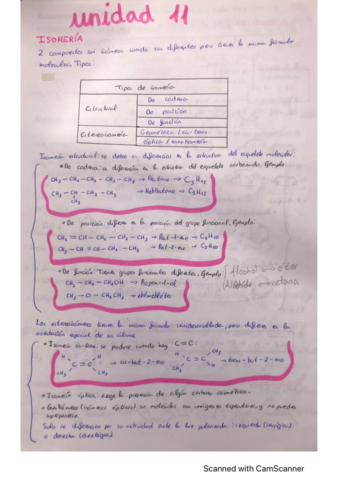 unidad 11
ISOMERÍA
2 compuestos son isómeros cuando son diferentes pero tienen la misma fórmula
molecular. Tipos:
Tipos de isomería
Estructural
De cadena
De posición
De función
Estereoisomería
Geométrica / cis-trans
Óptica / enantiomería
Isomería estructural: se debe a diferencias en la estructura del esqueleto molecular:
• De cadena: diferencia a la estructura del esqueleto carbonado. Ejemplo:
CH3 - CH2 - CH2 - CH2 - CH3 → Pentano → C5H12
CH3 - CH - CH2 - CH3 → Metilbutano → C5H12
CH3
• De posición: difiere a la posición del grupo funcional. Ejemplo:
CH2 = CH - CH2 - CH2 - CH3 → Pent-1-eno → C5H10
CH3 - CH = CH - CH2 - CH3 → Pent-2-eno → C5H10
• De función: Tienen grupos funcionales diferentes. Ejemplo
Alcohol ↔ éter
Aldehído ↔ cetona
CH3 - CH2 - CH2OH → Propan-1-ol
CH3 - O - CH2 CH3 →
Los estereoisómeros tienen la misma fórmula semidesarrollada, pero difieren a la
orientación espacial de sus átomos
• Isomería cis-trans: Se produce cuando hay C=C:
H H
C = C
CH3 CH3
→ cis-but-2-eno
H CH3
C = C
CH3 H
→ trans-but-2-eno
• Isomería óptica: exige la presencia de algún carbono asimétrico.
• Enantiómeros (isómeros ópticos): son moléculas con imágenes especulares, y no pueden
superponerse.
Solo se diferencian por su actividad ante la luz polarizada: izquierda (levógiro)
o derecha (dextrógiro)
Scanned with CamScanner